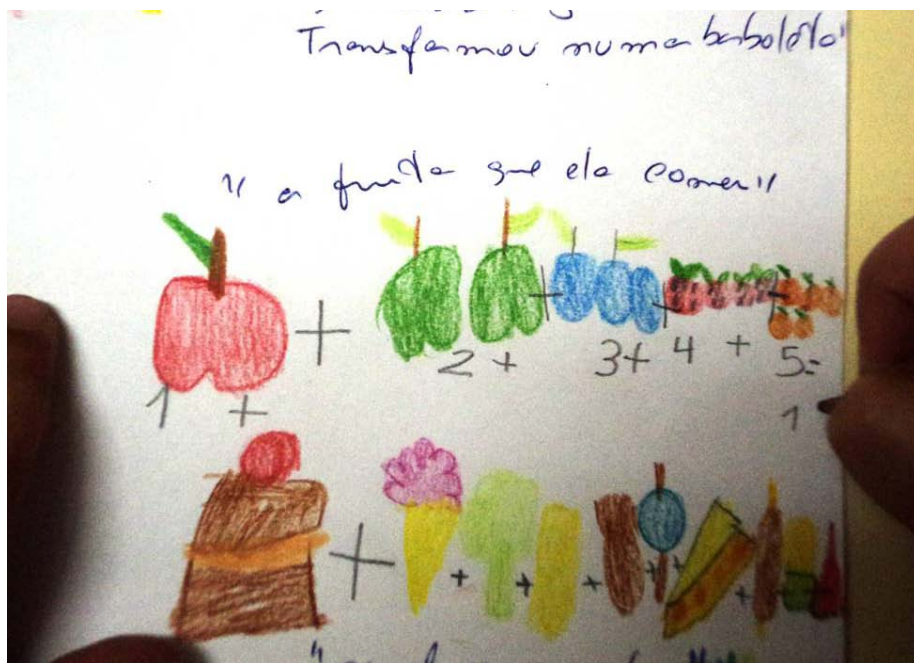 Transformou numa borboleta"
" a fruta que ela comeu"
+ + + +
1 + 2 + 3 + 4 + 5 =
1
+ + + + + + +